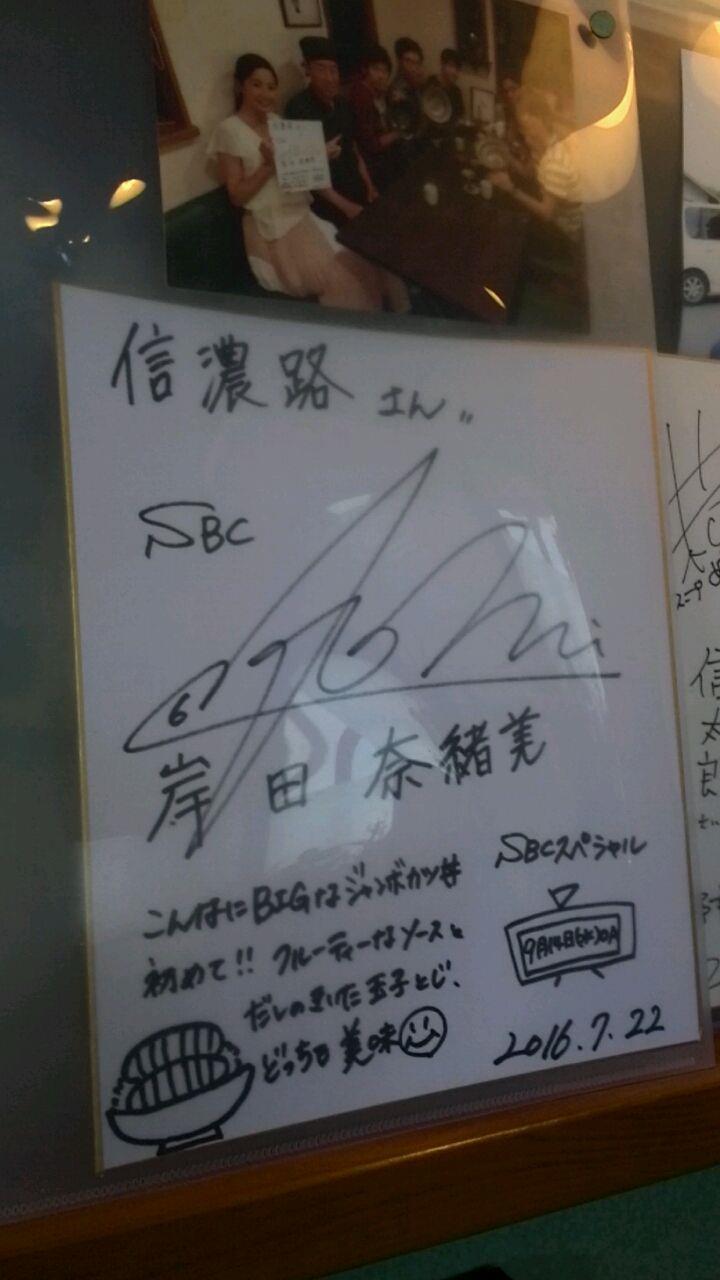 信濃路 さん〃
SBC
岸田 奈緒美
こんなにBIGなジャンボカツ丼
初めて!! フルーティーなソースと
だしのきいた玉子とじ、
どっちも美味
SBCスペシャル
9月14日(水)OA
2016.7.22
信
太
良